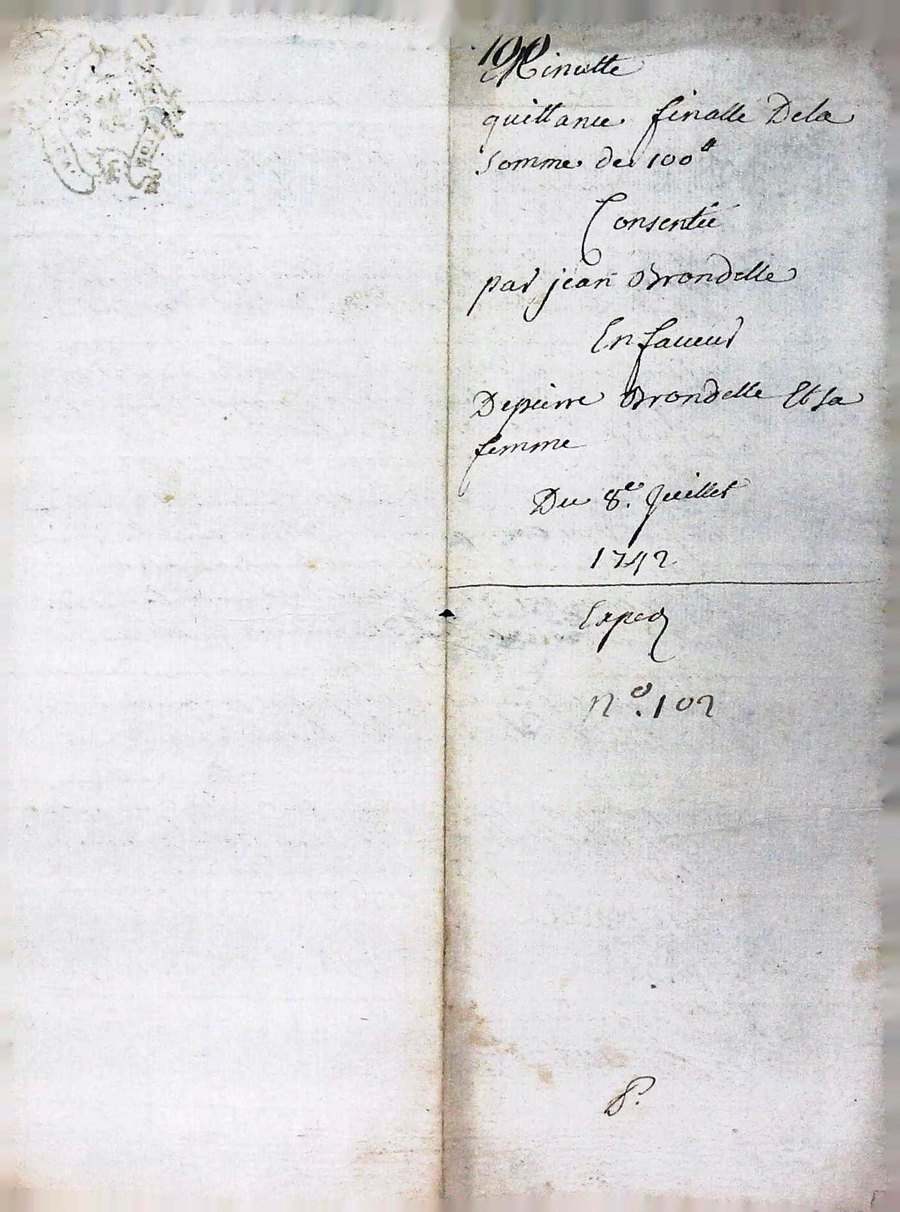 190
Minutte
quittance finalle Dela
Somme de 100ᵗᵗ
Consentie
par jean Brondelle
En faveur
Depierre Brondelle Et Sa
femme
Du 8.e Juillet
1742
Exped
No. 102
P.